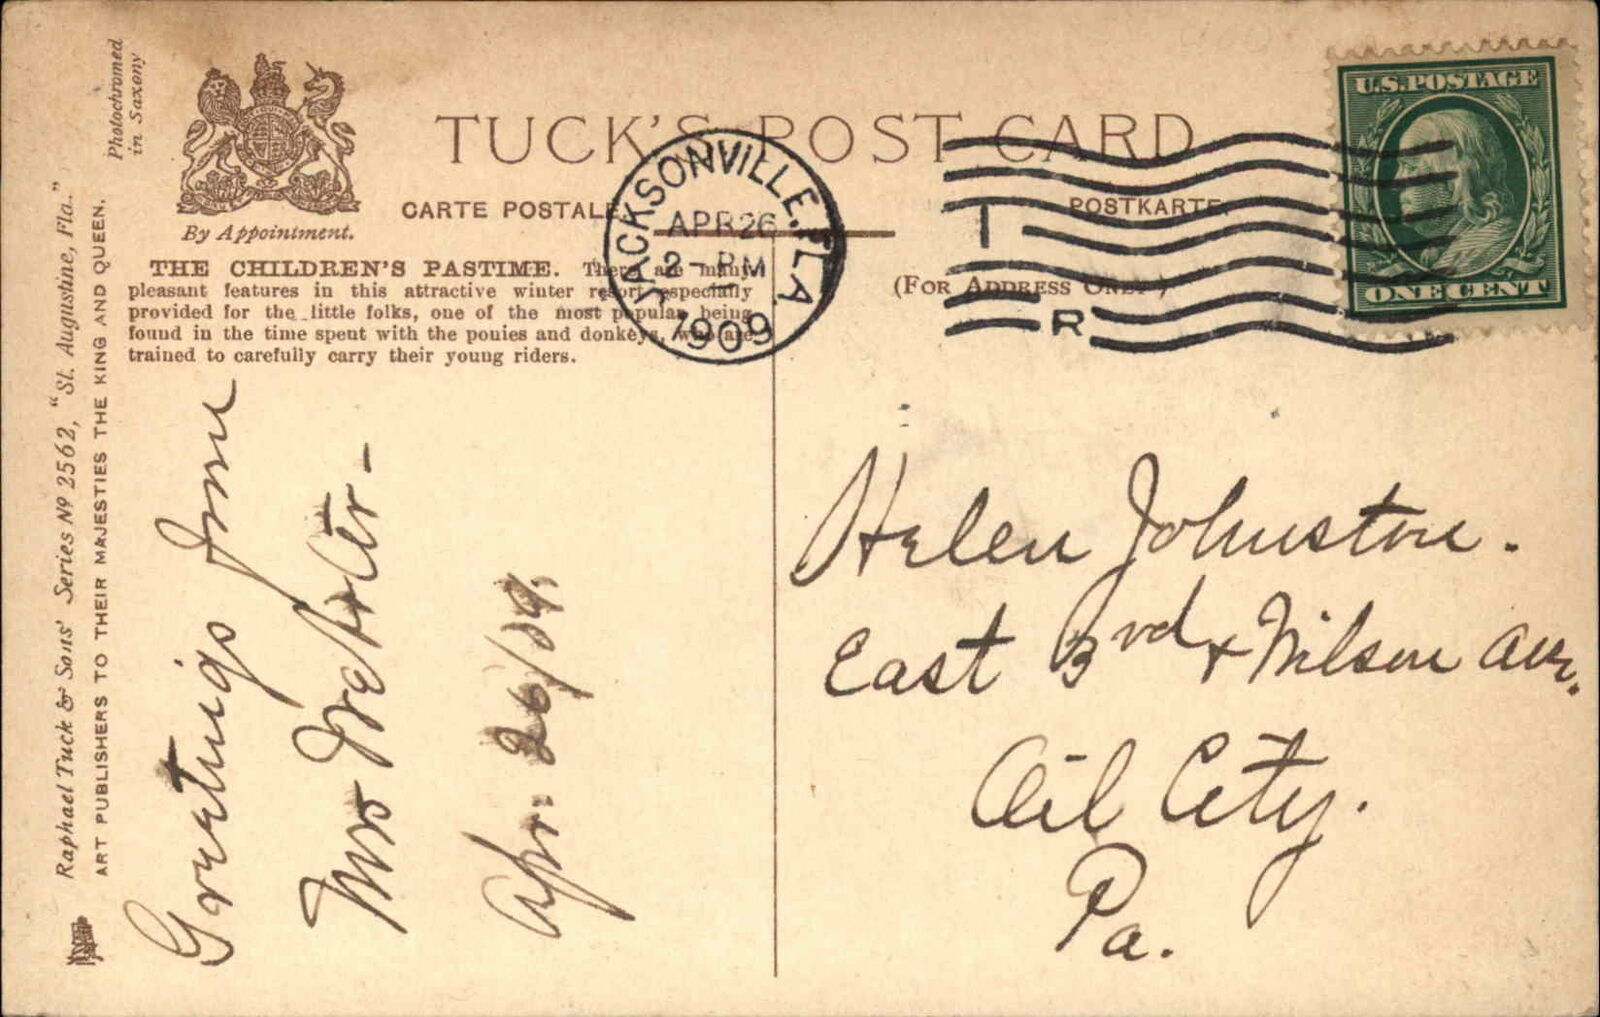 Photochromed
in Saxony
TUCK'S POST CARD
CARTE POSTALE
POSTKARTE.
(FOR ADDRESS ONLY)
By Appointment.
THE CHILDREN'S PASTIME. There are many
pleasant features in this attractive winter resort especially
provided for the little folks, one of the most popular being
found in the time spent with the ponies and donkeys, who are
trained to carefully carry their young riders.
Raphael Tuck & Sons' Series Nº 2562, "St. Augustine, Fla."
ART PUBLISHERS TO THEIR MAJESTIES THE KING AND QUEEN.
JACKSONVILLE, FLA.
APR 26
2 - PM
1909
T
R
U.S. POSTAGE
ONE CENT
Greetings from
Mrs
Apr. 26/09.
Helen Johnston.
East 3rd + Wilson Ave.
Oil City.
Pa.